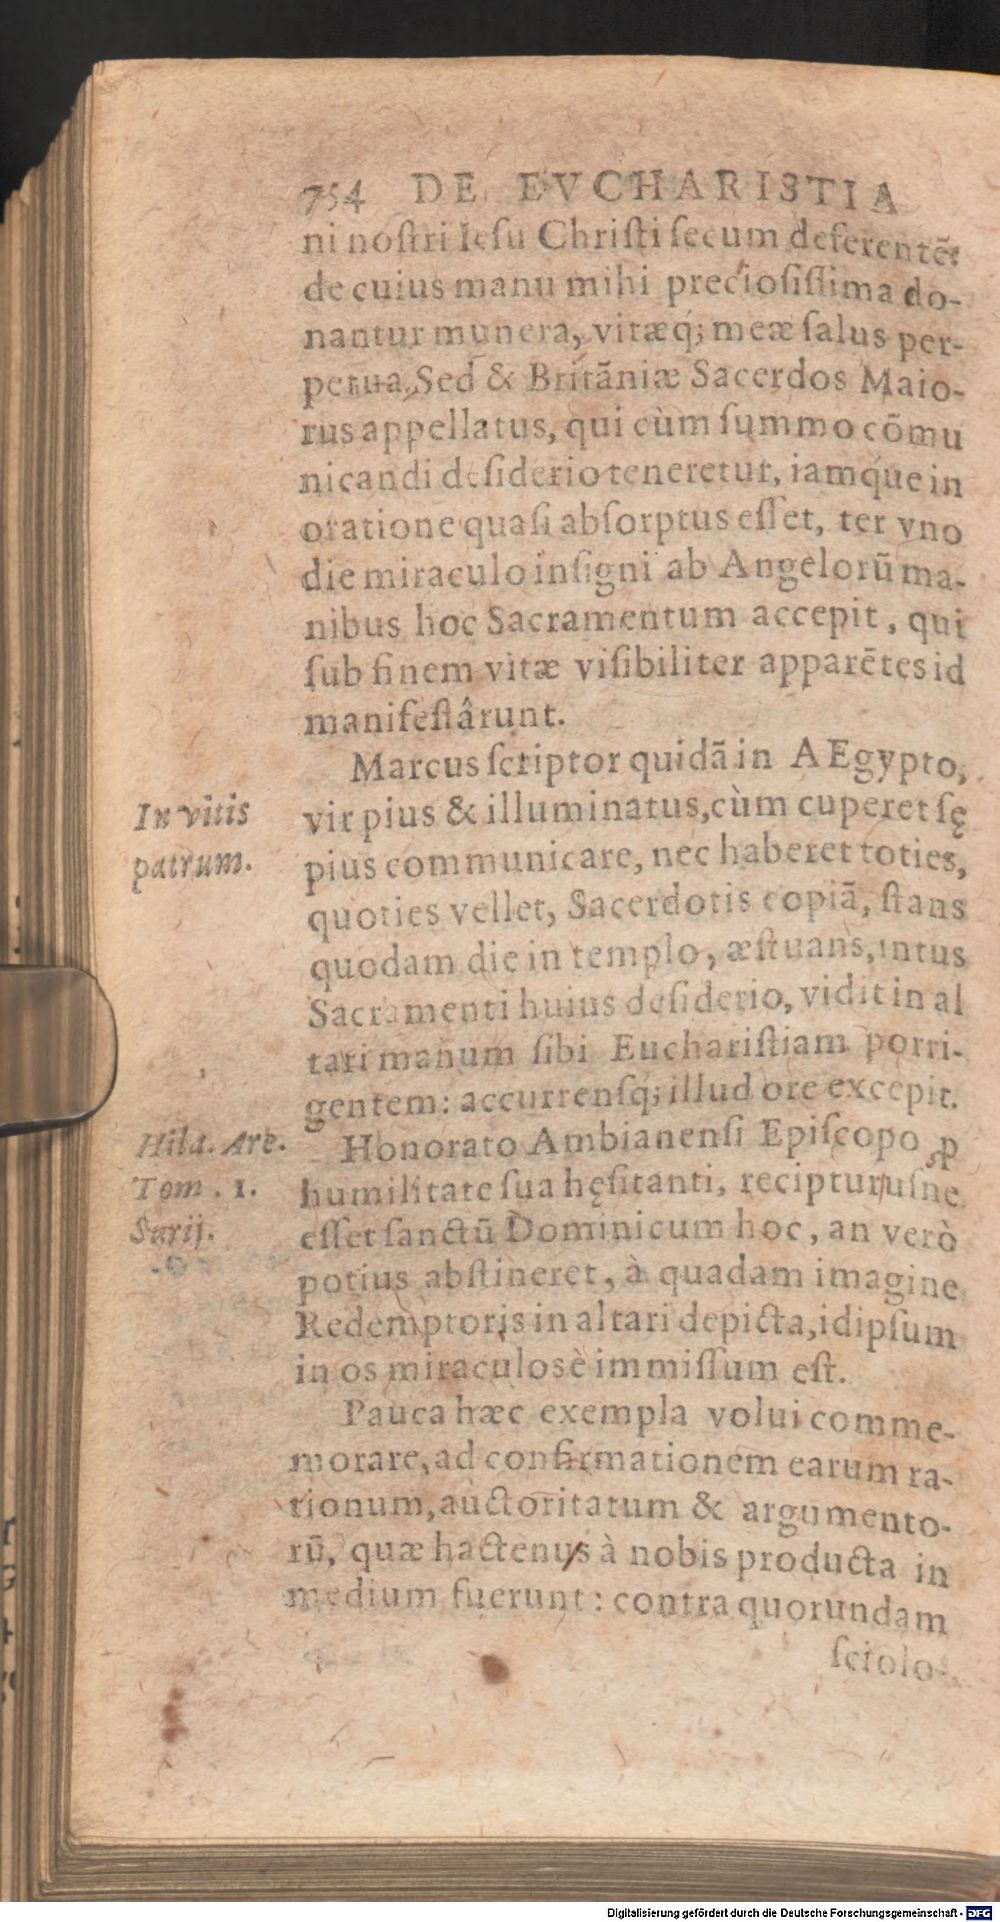 754 DE EVCHARISTIA
ni noſtri Ieſu Chriſti ſecum deferentē:
de cuius manu mihi precioſiſſima do-
nantur munera, vitæq́; meæ ſalus per-
petua. Sed & Britāniæ Sacerdos Maio-
rus appellatus, qui cùm ſummo cōmu
nicandi deſiderio teneretur, iamq́ue in
oratione quaſi abſorptus eſſet, ter vno
die miraculo inſigni ab Angelorū ma-
nibus hoc Sacramentum accepit, qui
ſub finem vitæ viſibiliter apparētes id
manifeſtârunt.
Marcus ſcriptor quidā in AEgypto,
In vitis
patrum.
vir pius & illuminatus, cùm cuperet ſę
pius communicare, nec haberet toties,
quoties vellet, Sacerdotis copiā, ſtans
quodam die in templo, æſtuans, intus
Sacramenti huius deſiderio, vidit in al
tari manum ſibi Euchariſtiam porri-
gentem: accurrenſq; illud ore excepit.
Hila. Are.
Tom. 1.
Surij.
Honorato Ambianenſi Epiſcopo ꝓ
humilitate ſua hęſitanti, recipturuſne
eſſet ſanctū Dominicum hoc, an verò
potius abſtineret, à quadam imagine
Redemptoris in altari depicta, idipſum
in os miraculosè immiſſum eſt.
Pauca hæc exempla volui comme-
morare, ad confirmationem earum ra-
tionum, auctoritatum & argumento-
rū, quæ hactenus à nobis producta in
medium fuerunt: contra quorundam
ſciolo-
Digitalisierung gefördert durch die Deutsche Forschungsgemeinschaft - DFG